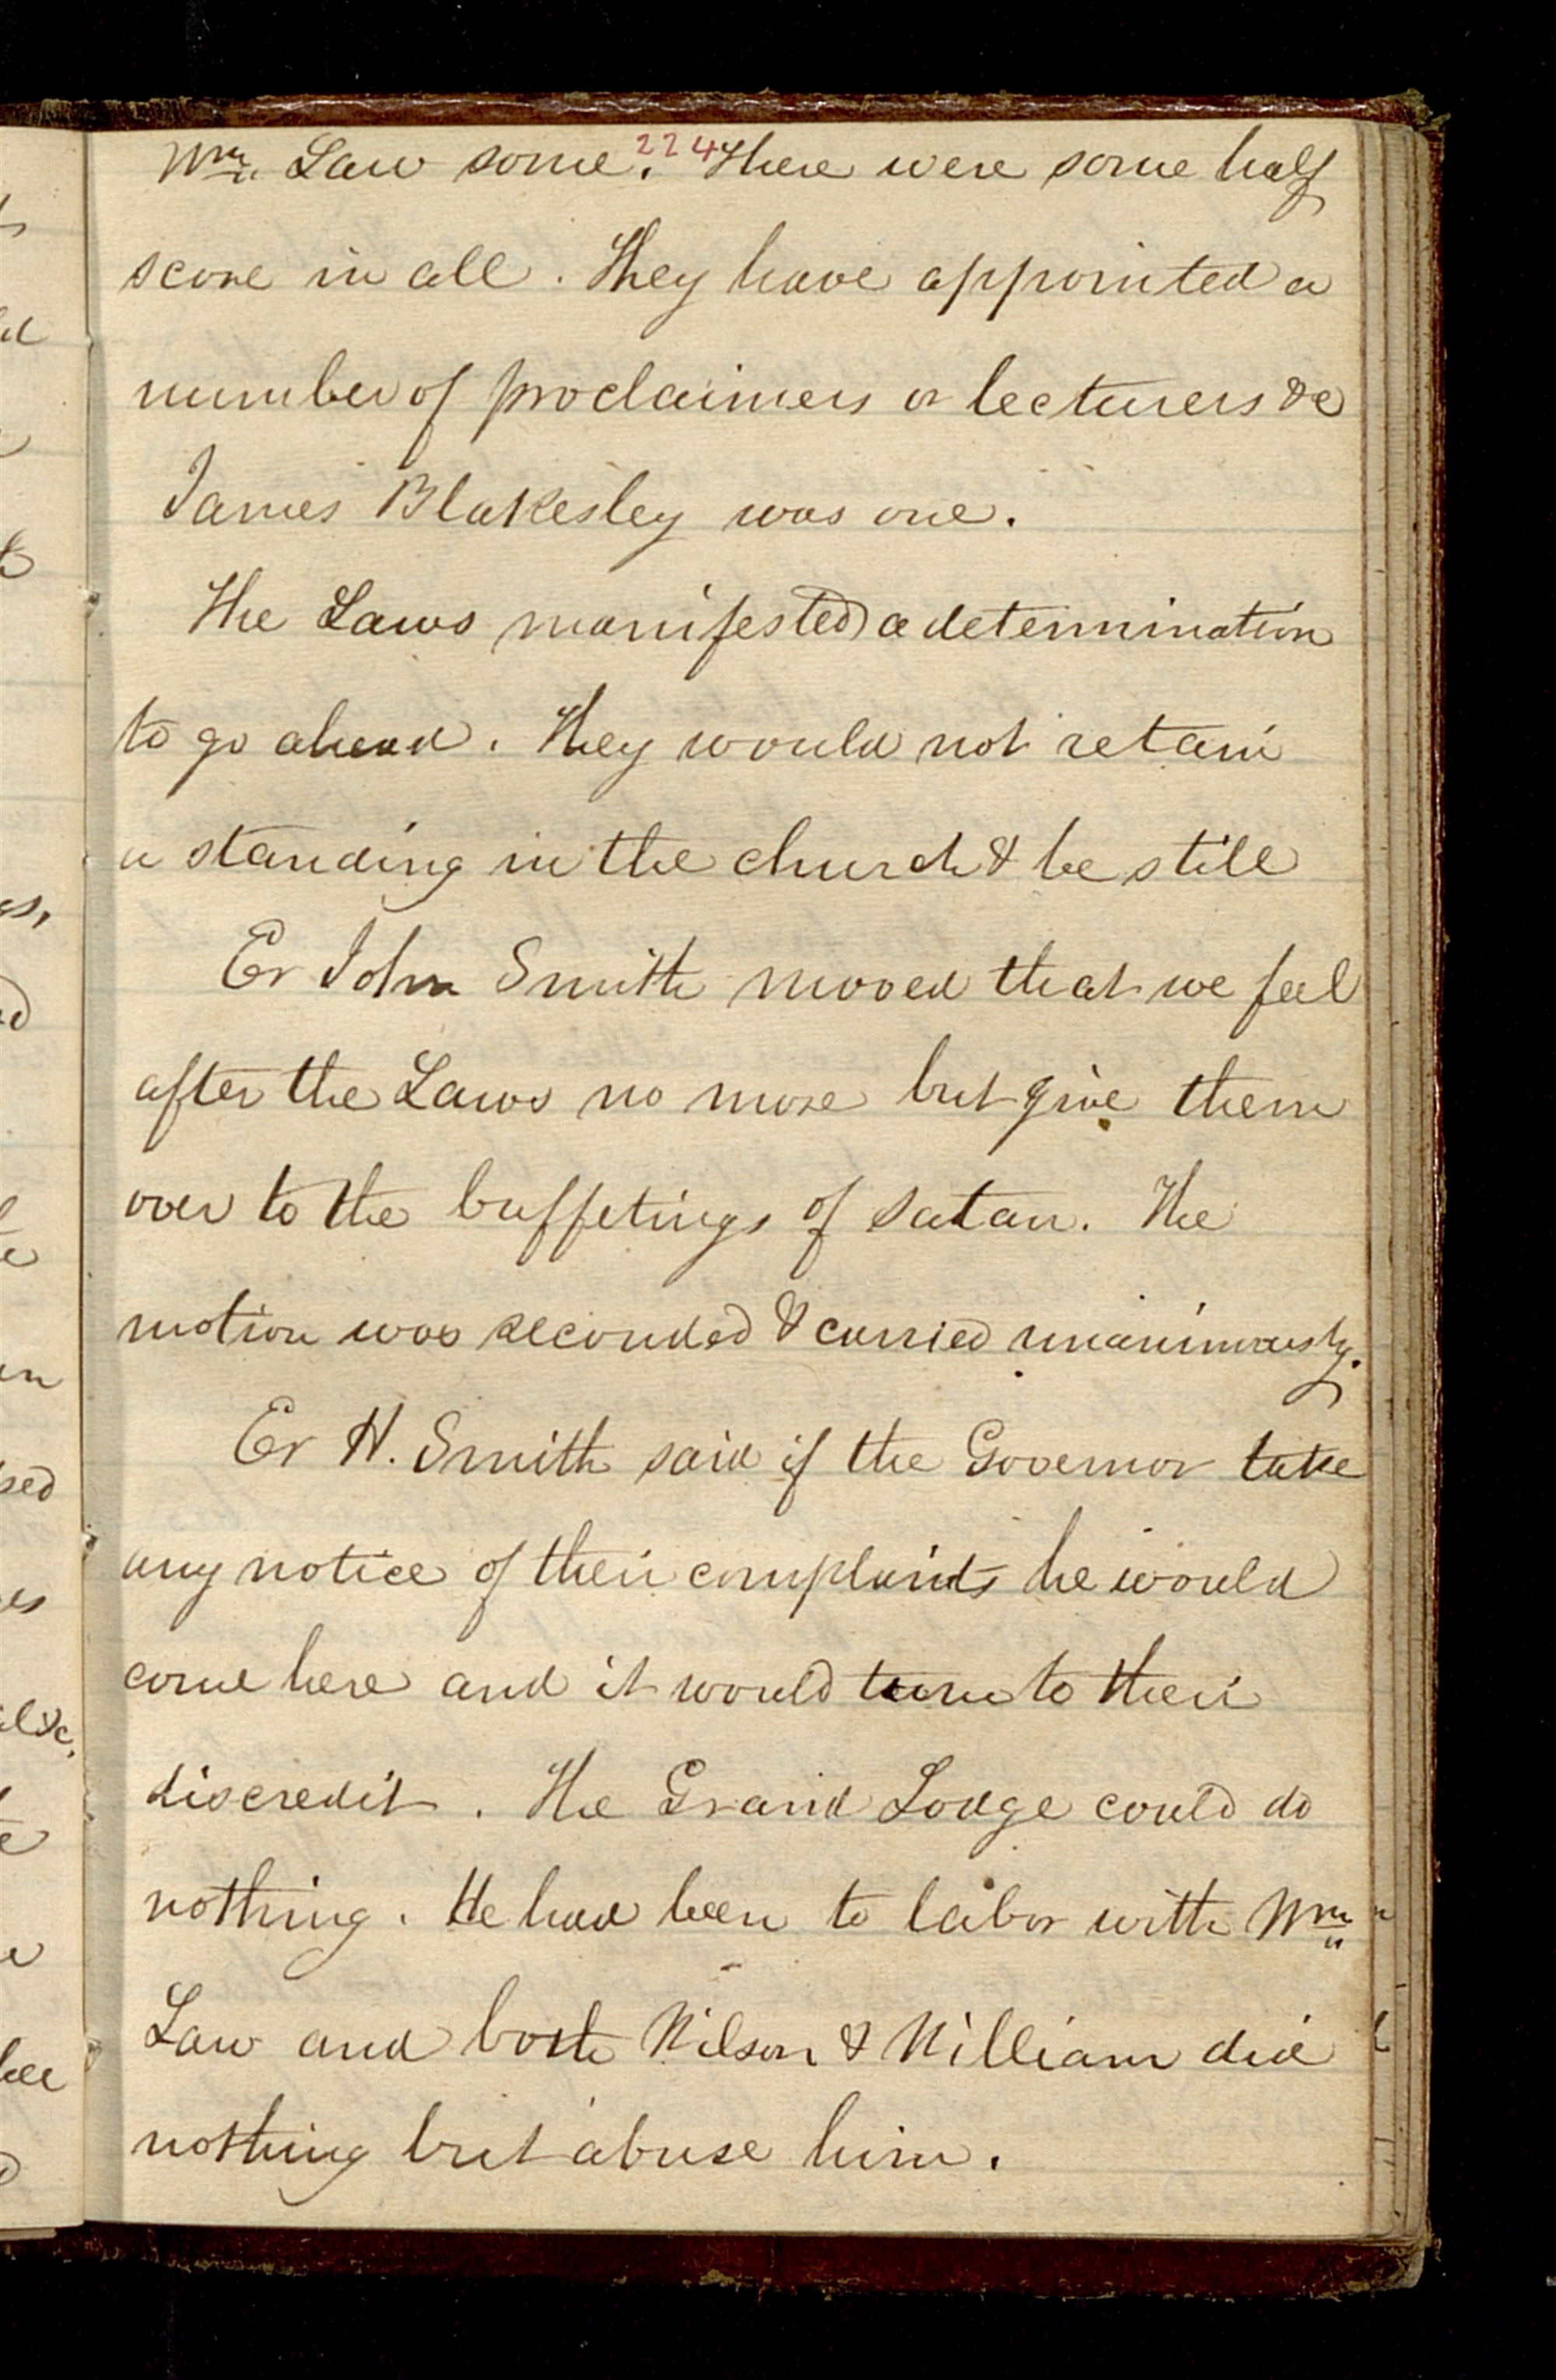 224
Wm. Law some. There were some half
score in all. They have appointed a
number of proclaimers or lecturers &c
James Blakesley was one.
The Laws manifested a determination
to go ahead. They would not retain
a standing in the church & be still
Er John Smith moved that we feel
after the Laws no more but give them
over to the buffetings of satan. The
motion was seconded & carried unanimously.
Er H. Smith said if the Governor take
any notice of their complaints he would
come here and it would turn to their
discredit. The Grand Lodge could do
nothing. He had been to labor with Wm
Law and both Wilson & William did
nothing but abuse him.